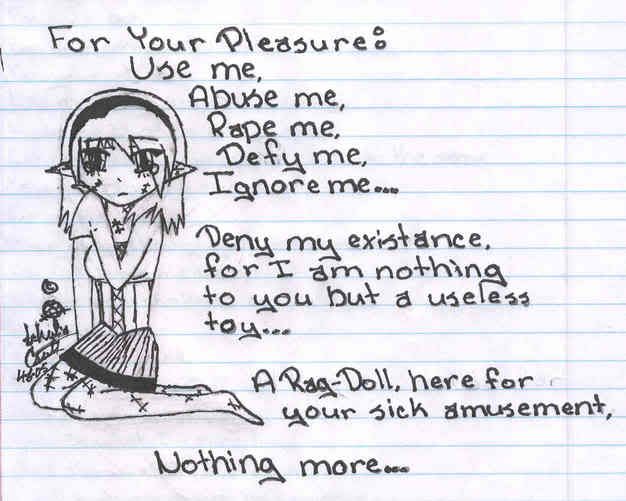 For Your Pleasure:
Use me,
Abuse me,
Rape me,
Defy me,
Ignore me...
Deny my existance,
for I am nothing
to you but a useless
toy...
A Rag-Doll, here for
your sick amusement,
Nothing more...
©